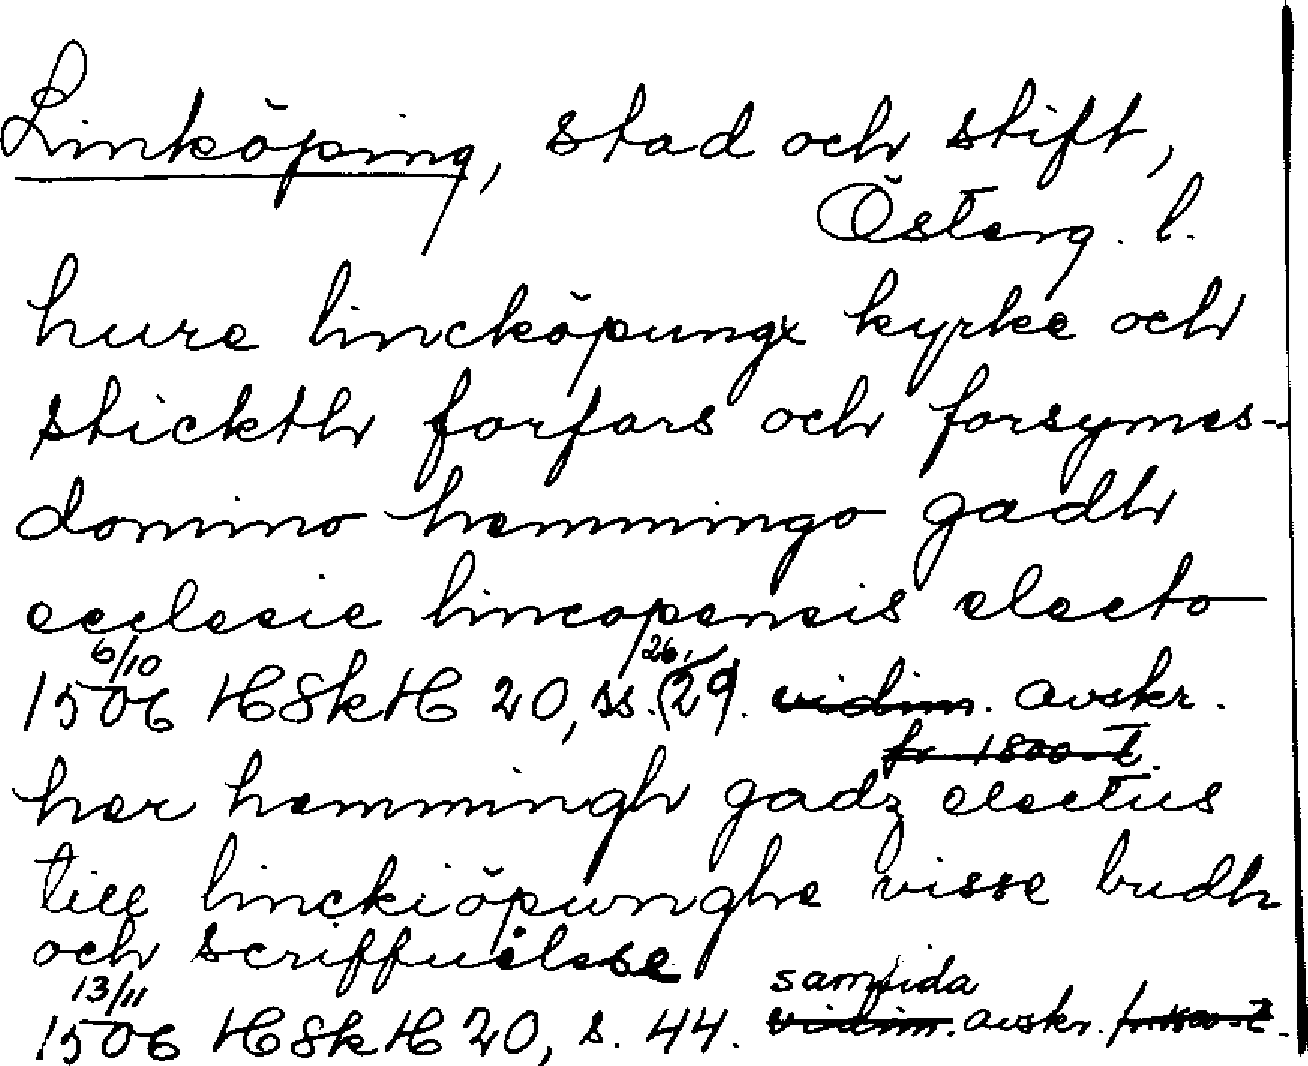 Linköping, stad och stift,
Österg. l.
hure lincköpungx kyrke och
stickth forfars och forsymes-
domino hemmingo gadh
ecclesie lincopensis electo
6/10 26,
1506 HSkH 20, ss. (29. vidim. avskr.
fr 1800-t.
her hemmingh gadz electus
till linckiöpunghe visse budh
och scriffuilse
13/11 samtida
1506 HSkH 20, s. 44. vidim. avskr. fr 1800-t.